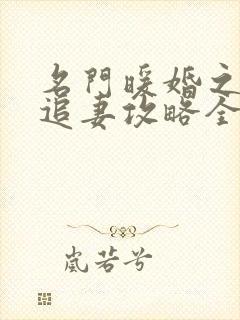 名門暖婚之
追妻攻略全
嵐若兮